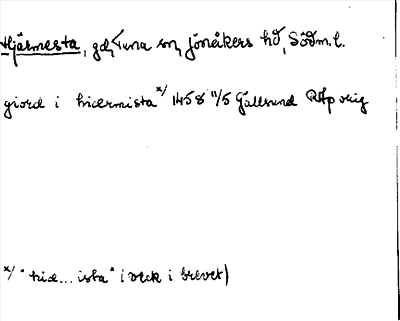 Hjärmesta, gd, Tuna sn, Jönåkers hd, Södm.l.
giord i hidermista x/ 1458 11/5 Gällsund RAp orig
x/ "hid...ista" (veck i brevet)